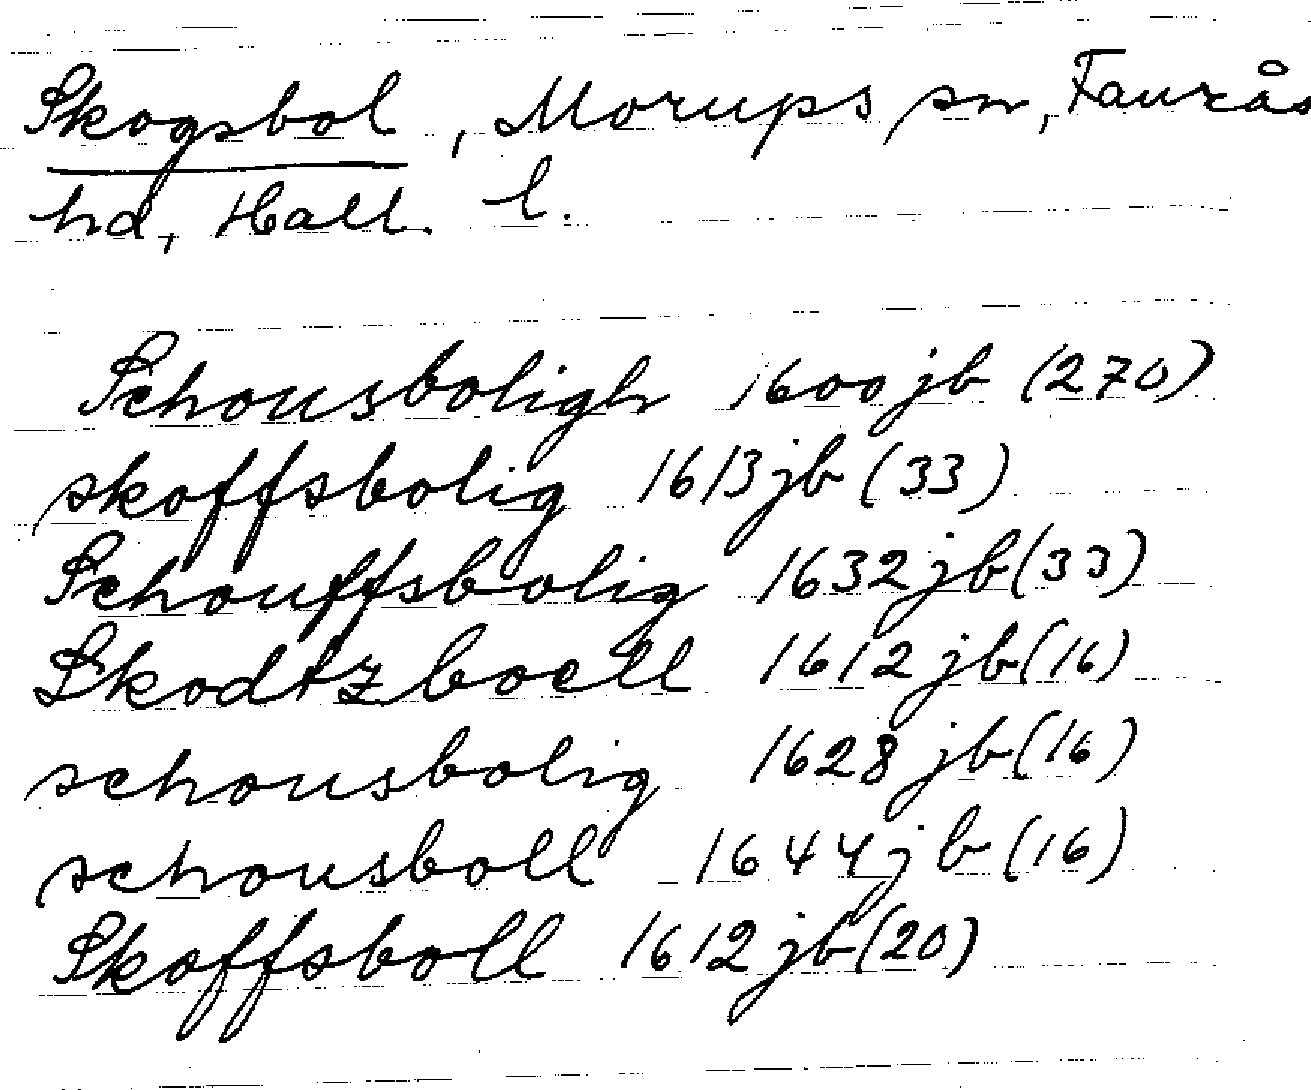 Skogsbol, Morups sn, Faurås
hd, Hall. l.
Schousboligh 1600 jb (270)
skoffsbolig 1613 jb (33)
Schouffsbolig 1632 jb (33)
Skodtzboell 1612 jb (16)
schousbolig 1628 jb (16)
schousboll 1644 jb (16)
Skoffsboll 1612 jb (20)